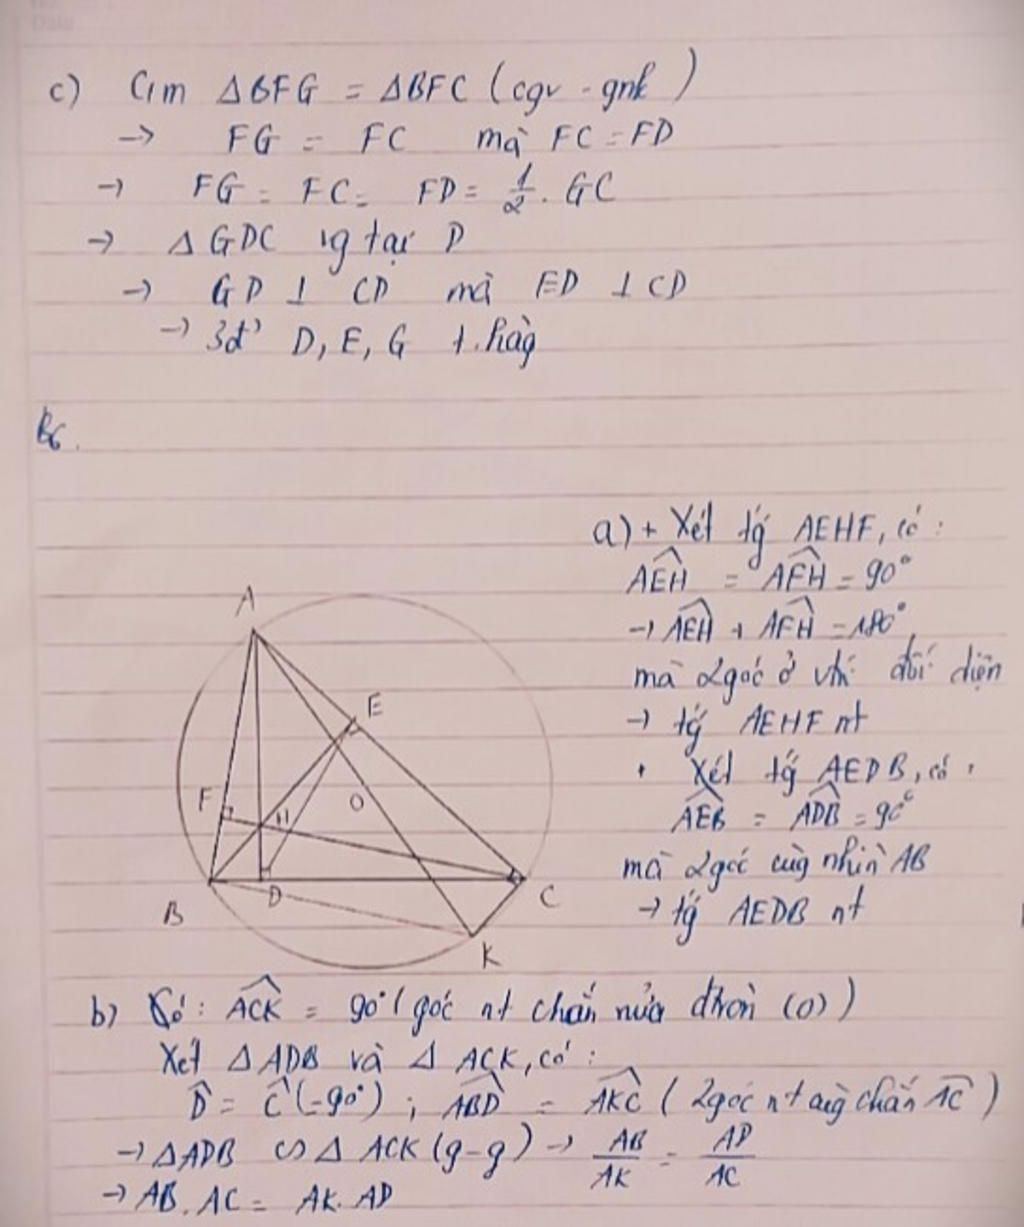 c) Cm ΔBFG = ΔBFC (cgv - gnk)
→ FG = FC mà FC = FD
→ FG = FC = FD = 1/2 . GC
→ ΔGDC vg tại D
→ GD ⊥ CD mà ED ⊥ CD
→ 3đ' D, E, G t.hàg
B6.
A
E
F
H
O
B
D
C
K
a) + Xét tģ AEHF, có :
AEH = AFH = 90°
→ AEH + AFH = 180°
mà 2góc ở vtrí đối diện
→ tģ AEHF nt
• Xét tģ AEDB, có :
AEB = ADB = 90°
mà 2góc cùg nhìn AB
→ tģ AEDB nt
b) Có : ACK = 90° (góc nt chắn nửa đtròn (O))
Xét ΔADB và Δ ACK, có :
D = C (= 90°) ; ABD = AKC (2góc nt cùg chắn AC)
→ ΔADB ∽ Δ ACK (g-g) → AB/AK = AD/AC
→ AB . AC = AK . AD